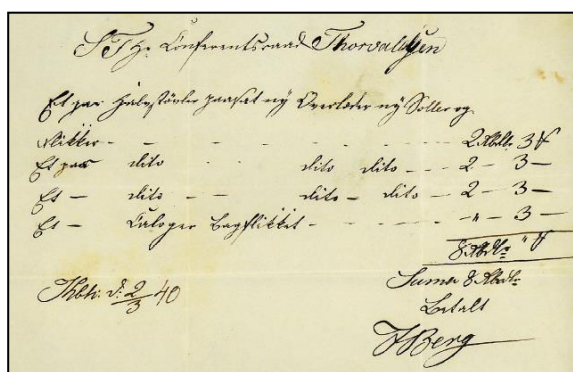 S T Hr Conferentsraad Thorvaldsen
Et par Halvstövler paasat ny Overlæder ny Soller og
Flikker - - - - - - - 2 Rbdlr 3 ₰
Et par dito dito dito - - 2 - 3 -
Et - dito - - dito - dito - - 2 - 3 -
Et - Caloger Bagflikket - - - - - " - 3 -
8 Rbdlr " ₰
Kbh: d: 2/3 40
Suma 8 Rbdlr
Betalt
Berg